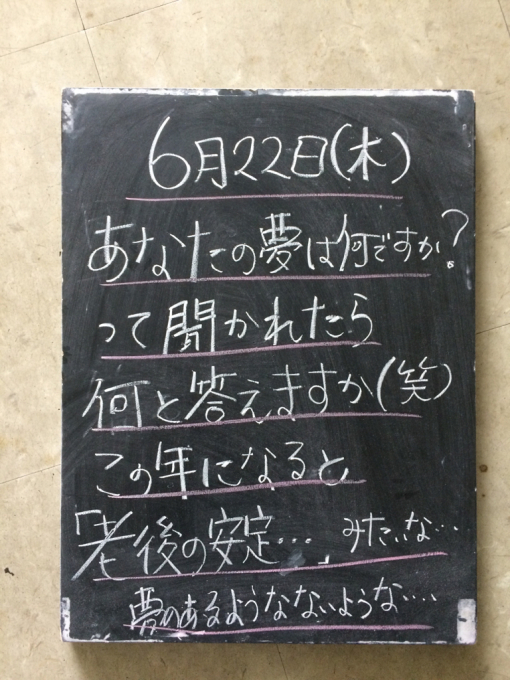 6月22日(木)
あなたの夢は何ですか?
って聞かれたら
何と答えますか(笑)
この年になると
「老後の安定…」みたいな…
夢のあるようなないような….